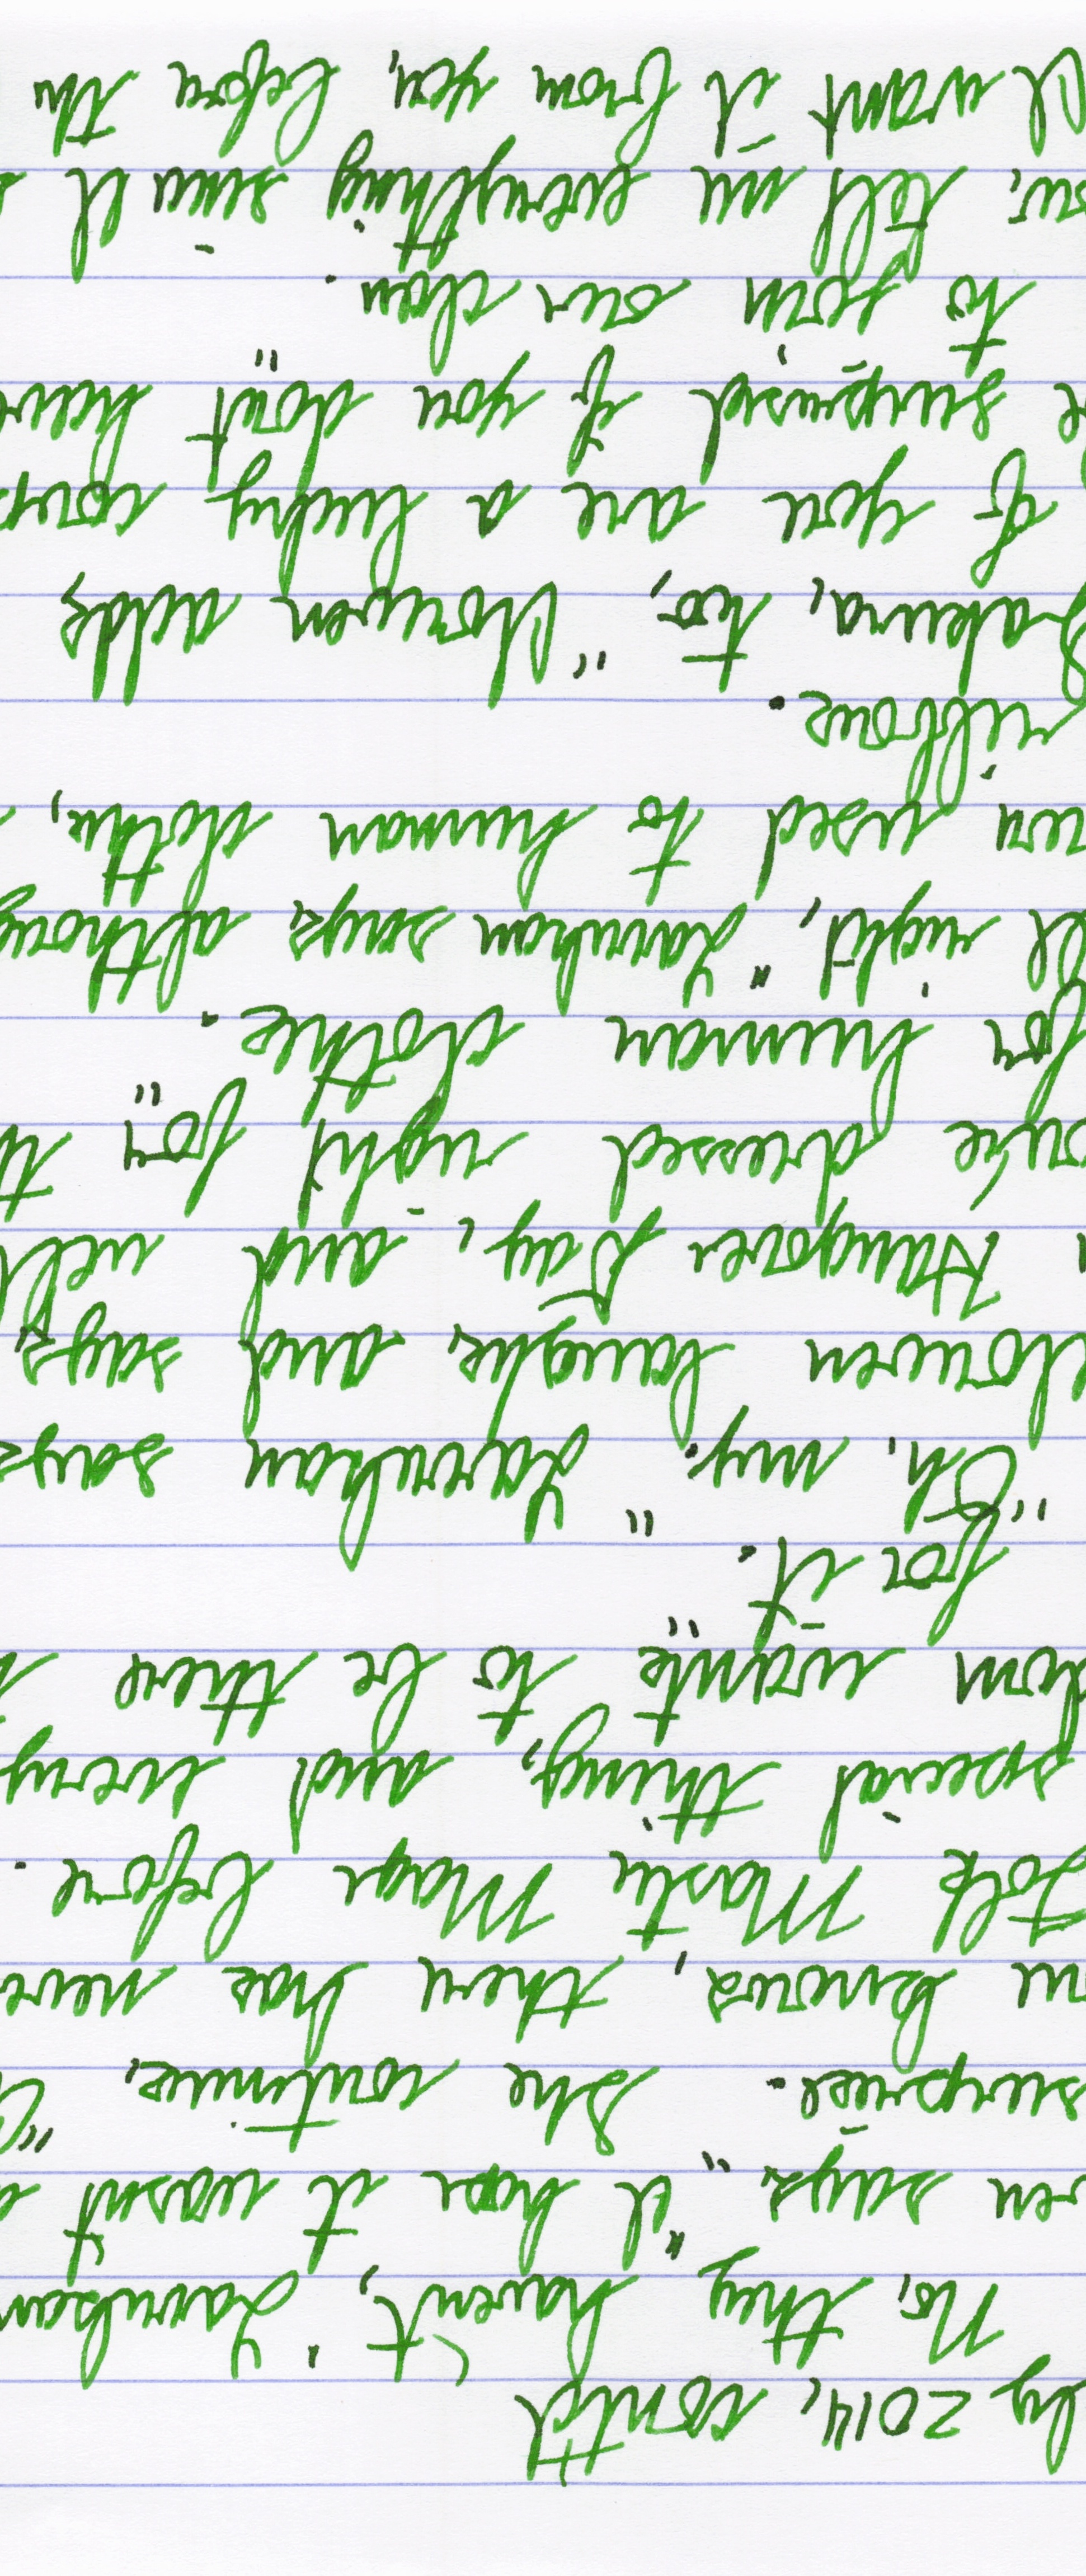 ly 2014, cont'd
No, they haven't," Yaruhan
ren says, "I hope it wasn't
surprise." She continues, "
knows, there has neve
Folk Master Mage before.
special thing, and every
dom wants to be there
for it."
"Oh, my." Yaruhan says
lowren laughs, and says,
Hangover Day, and we'll
dressed right for" th
for human clothes.
ll right," Yaruhan says, althoug
used to human clothes,
ribbons.
akura, too," Slowren adds,
If you are a lucky coup
surprised if you don't" have
to join our clan.
tell me everything since I
I want it from you, before the